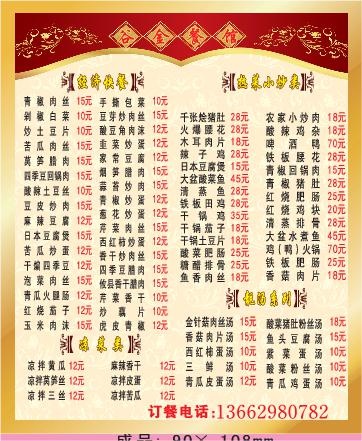 谷金餐馆
经济快餐
青椒肉丝 15元 手撕包菜 10元
剁椒白菜 10元 豆芽炒肉丝 10元
炒土豆片 10元 酸豆角肉沫 12元
苦瓜肉丝 15元 韭菜炒蛋 12元
莴笋腊肉 15元 家常豆腐 12元
四季豆回锅肉 15元 烟笋腊肉 15元
酸辣土豆丝 10元 蒜苔炒肉 15元
豆皮炒肉 10元 青椒炒蛋 12元
麻辣豆腐 10元 葱花炒蛋 12元
日本豆腐煲 15元 芹菜肉丝 15元
苦瓜炒蛋 12元 西红柿炒蛋 12元
干煸四季豆 12元 香干炒肉 15元
泡菜肉丝 15元 四季豆腊肉 15元
青瓜火腿肠 12元 攸县香干腊肉 15元
红烧茄子 12元 芹菜香干 12元
玉米肉沫 15元 炒藕片 12元
虎皮青椒 12元
热菜小炒类
千张烩猪肚 28元 农家小炒肉 18元
火爆腰花 28元 酸辣鸡杂 18元
木耳肉片 18元 啤酒鸭 70元
辣子鸡 28元 铁板腰花 28元
日本豆腐煲 18元 青椒回锅肉 18元
大盆酸菜鱼 45元 青椒猪肚 28元
清蒸鱼 28元 红烧肥肠 25元
铁板田鸡 28元 红烧鸡块 20元
干锅鸡 35元 清蒸排骨 28元
干锅茄子 18元 大盆水煮鱼 45元
干锅土豆片 18元 鸡(鸭)火锅 70元
酸菜肥肠 25元 铁板肥肠 30元
糖醋排骨 28元 香菇肉片 18元
鱼香肉丝 18元
靓汤系列
金针菇肉丝汤 15元 酸菜猪肚粉丝汤 18元
香菇肉片汤 15元 鱼头豆腐汤 18元
西红柿蛋汤 10元 紫菜蛋汤 10元
三鲜汤 15元 酸菜粉丝汤 10元
青瓜皮蛋汤 12元 青瓜鸡蛋汤 10元
凉菜类
凉拌黄瓜 12元 麻辣香干 12元
凉拌莴笋丝 12元 凉拌皮蛋 12元
凉拌三丝 12元 凉拌腐皮 12元
订餐电话:13662980782
成品:90×108mm